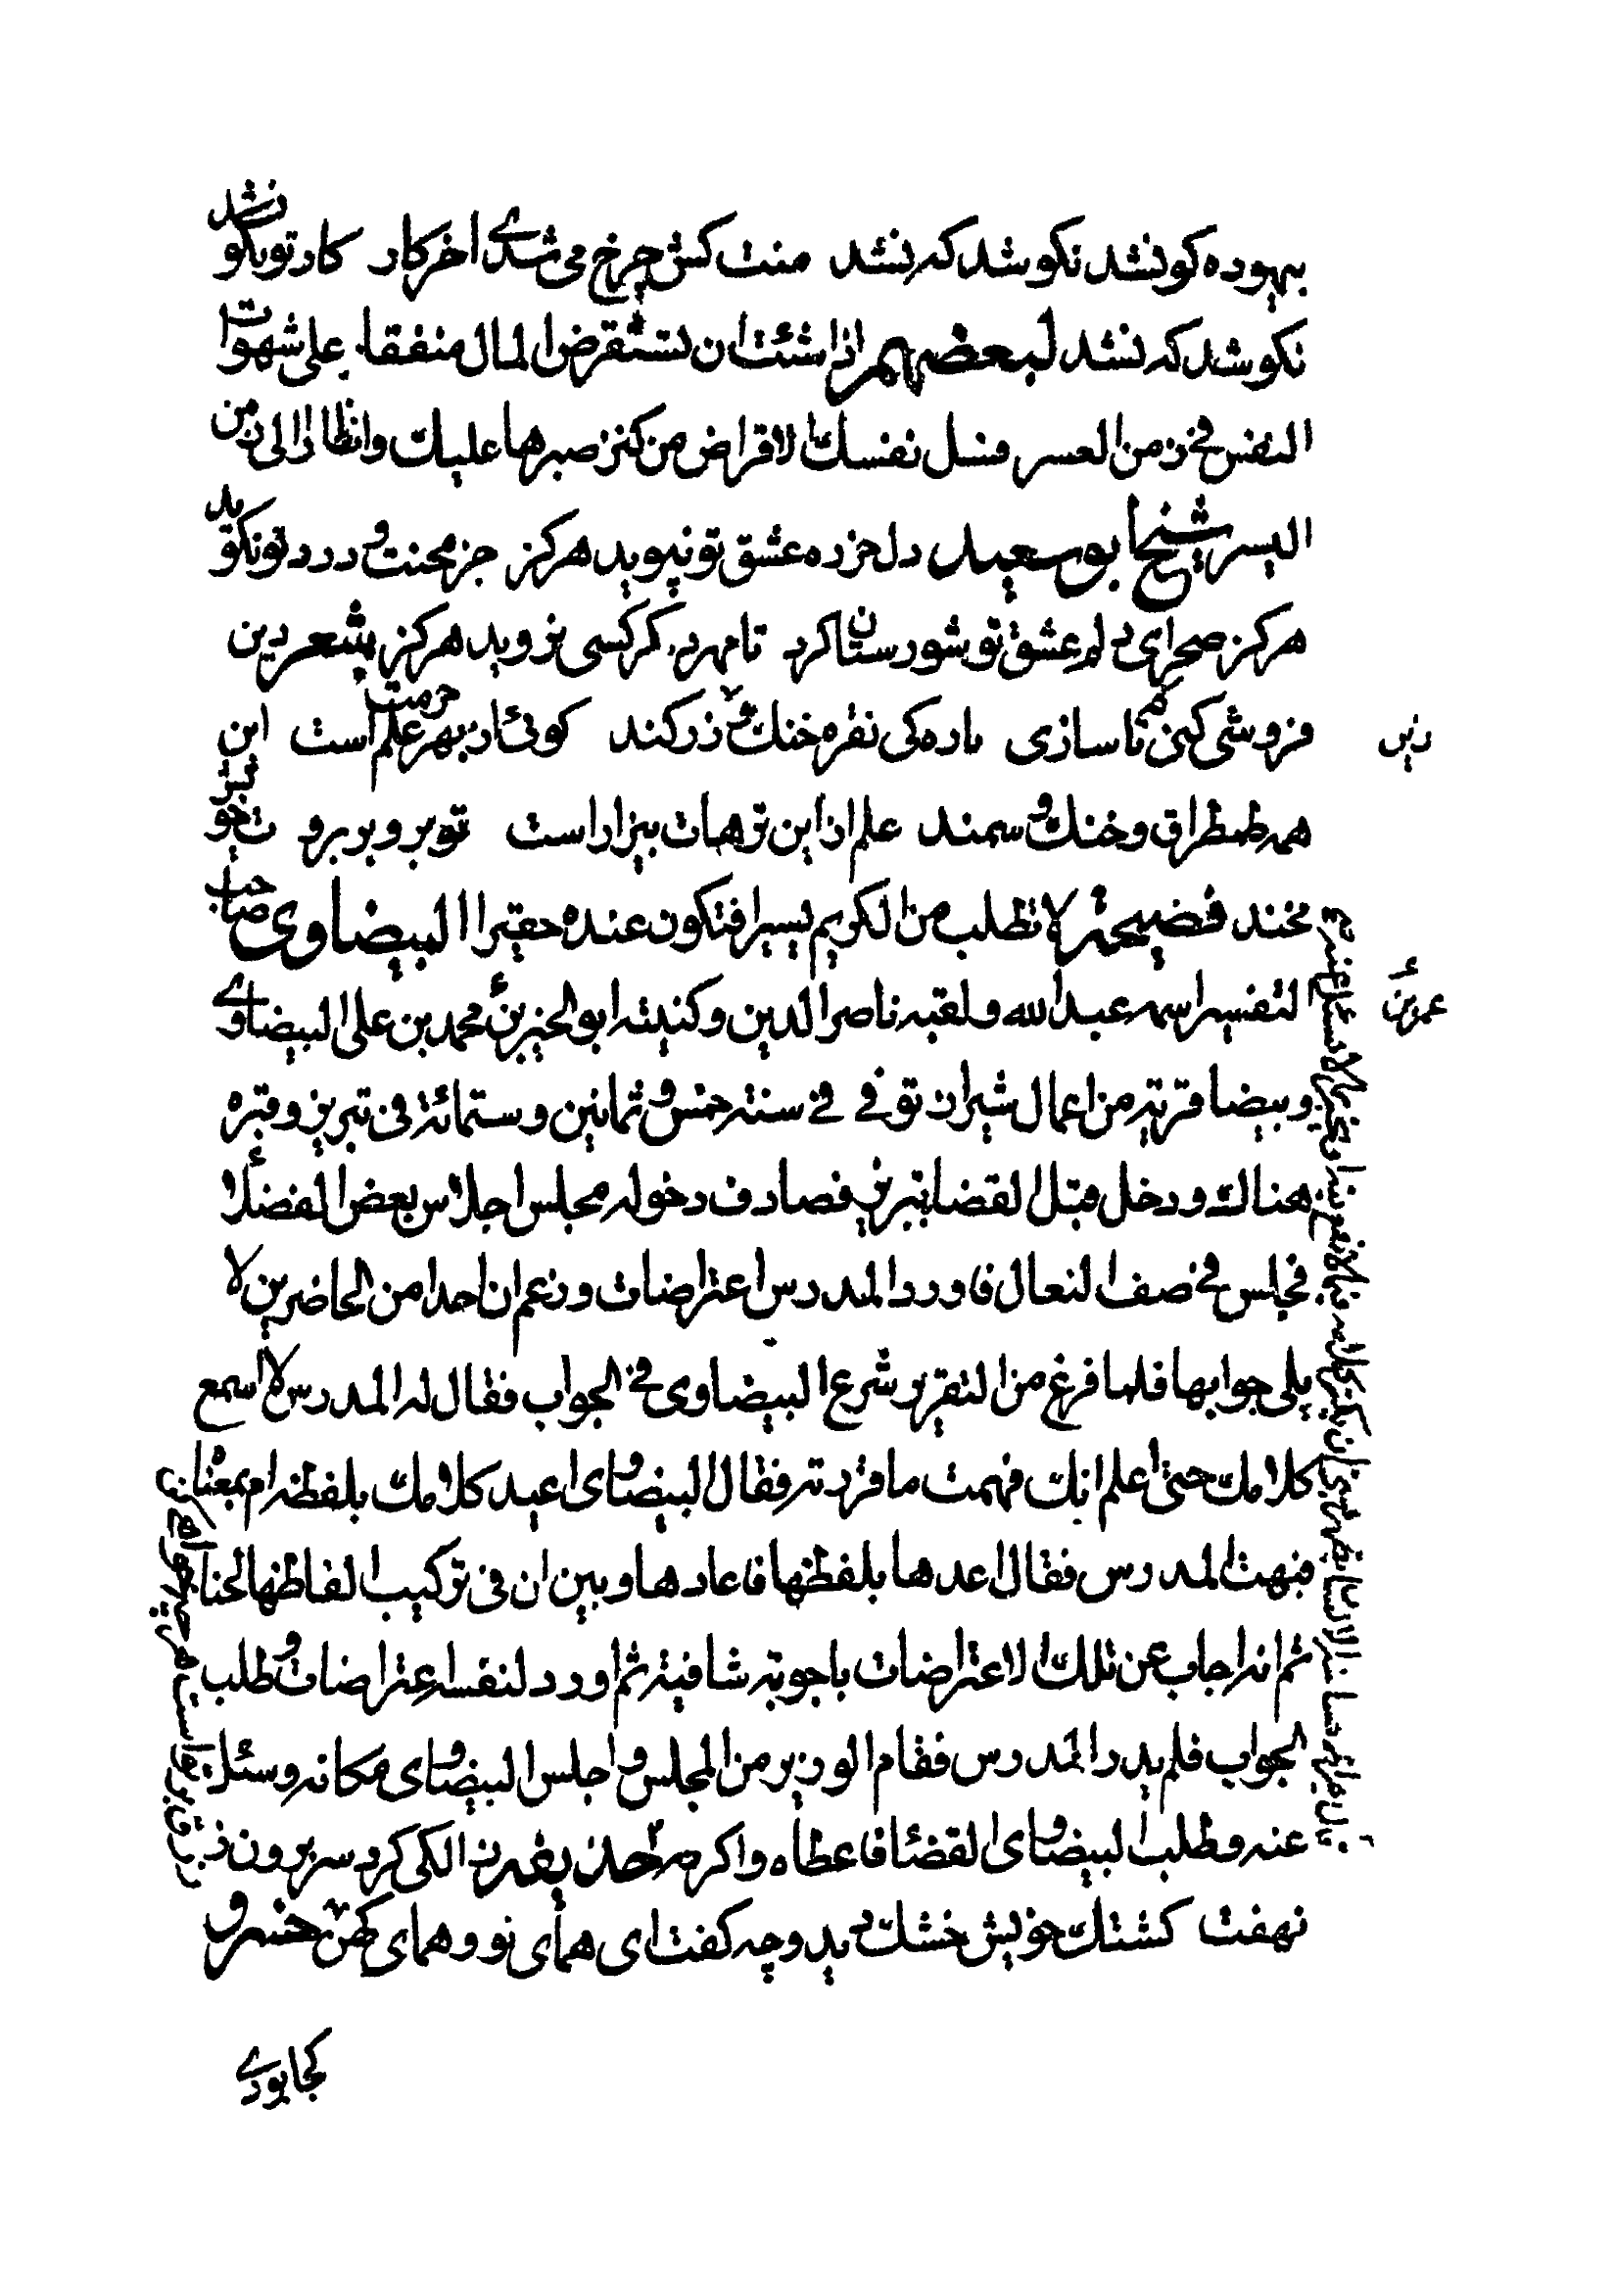 بیهوده کو نشد نکو شد که نشد منت کش چرخ می شدی اخر کار کار تو بکو نشد
نکو شد که نشد لبعضهم اذا شئت ان تستقرض المال منفقا علی شهوات
النفس فی زمن العسر فسل نفسك الاقراض من کنز صبرها علیك وانظارا الی زمن
الیسر شیخ ابو سعید دل جز ره عشق تو نپوید هرکز جز محنت و درد تو نکوید
هرکز صحرای دلم عشق تو شورستان کرد تا مهر کسی نروید هرکز بشعر دین
فروشی کنی که تا سازی باره کی نقره خنك زر کند کوئی از بهر حرمت علم است این
همه طمطراق و خنك و سمند علم از این ترهات بیزار است تو برو بر بروت خویش
بخند فضیحة لا تطلب من الکریم یسیرا فتکون عنده حقیرا البیضاوی صاحب
التفسیر اسمه عبد الله ولقبه ناصر الدین وکنیته ابو الخیر بن محمد بن علی البیضاوی
وبیضا قریة من اعمال شیراز توفی فی سنة خمس و ثمانین وستمائة فی تبریز وقبره
هناك ودخل قبل القضا بتبریز فصادف دخوله مجلس اجلاس بعض الفضلا
فجلس فی صف النعال فاورد المدرس اعتراضات وزعم ان احدا من الحاضرین لا
یلی جوابها فلما فرغ من التقریر شرع البیضاوی فی الجواب فقال له المدرس لا اسمع
کلامك حتی اعلم انك فهمت ما قررته فقال البیضاوی اعید کلامك بلفظه ام بمعناه
فبهت المدرس فقال اعدها بلفظها فاعادها وبین ان فی ترکیب الفاظها لحنا
ثم انه اجاب عن تلك الاعتراضات باجوبة شافیة ثم اورد لنفسه اعتراضات و طلب
الجواب فلم یدر المدرس فقام الوزیر من المجلس و اجلس البیضاوی مکانه وسئل
عنه وطلب البیضاوی القضا فاعطاه واکرمه کلکی کرد سر برون ز
نهفت کشتك خویش خشك دید وچه کفت ای همای نو و همای کهن
زین
عمر بن
کجا بودی